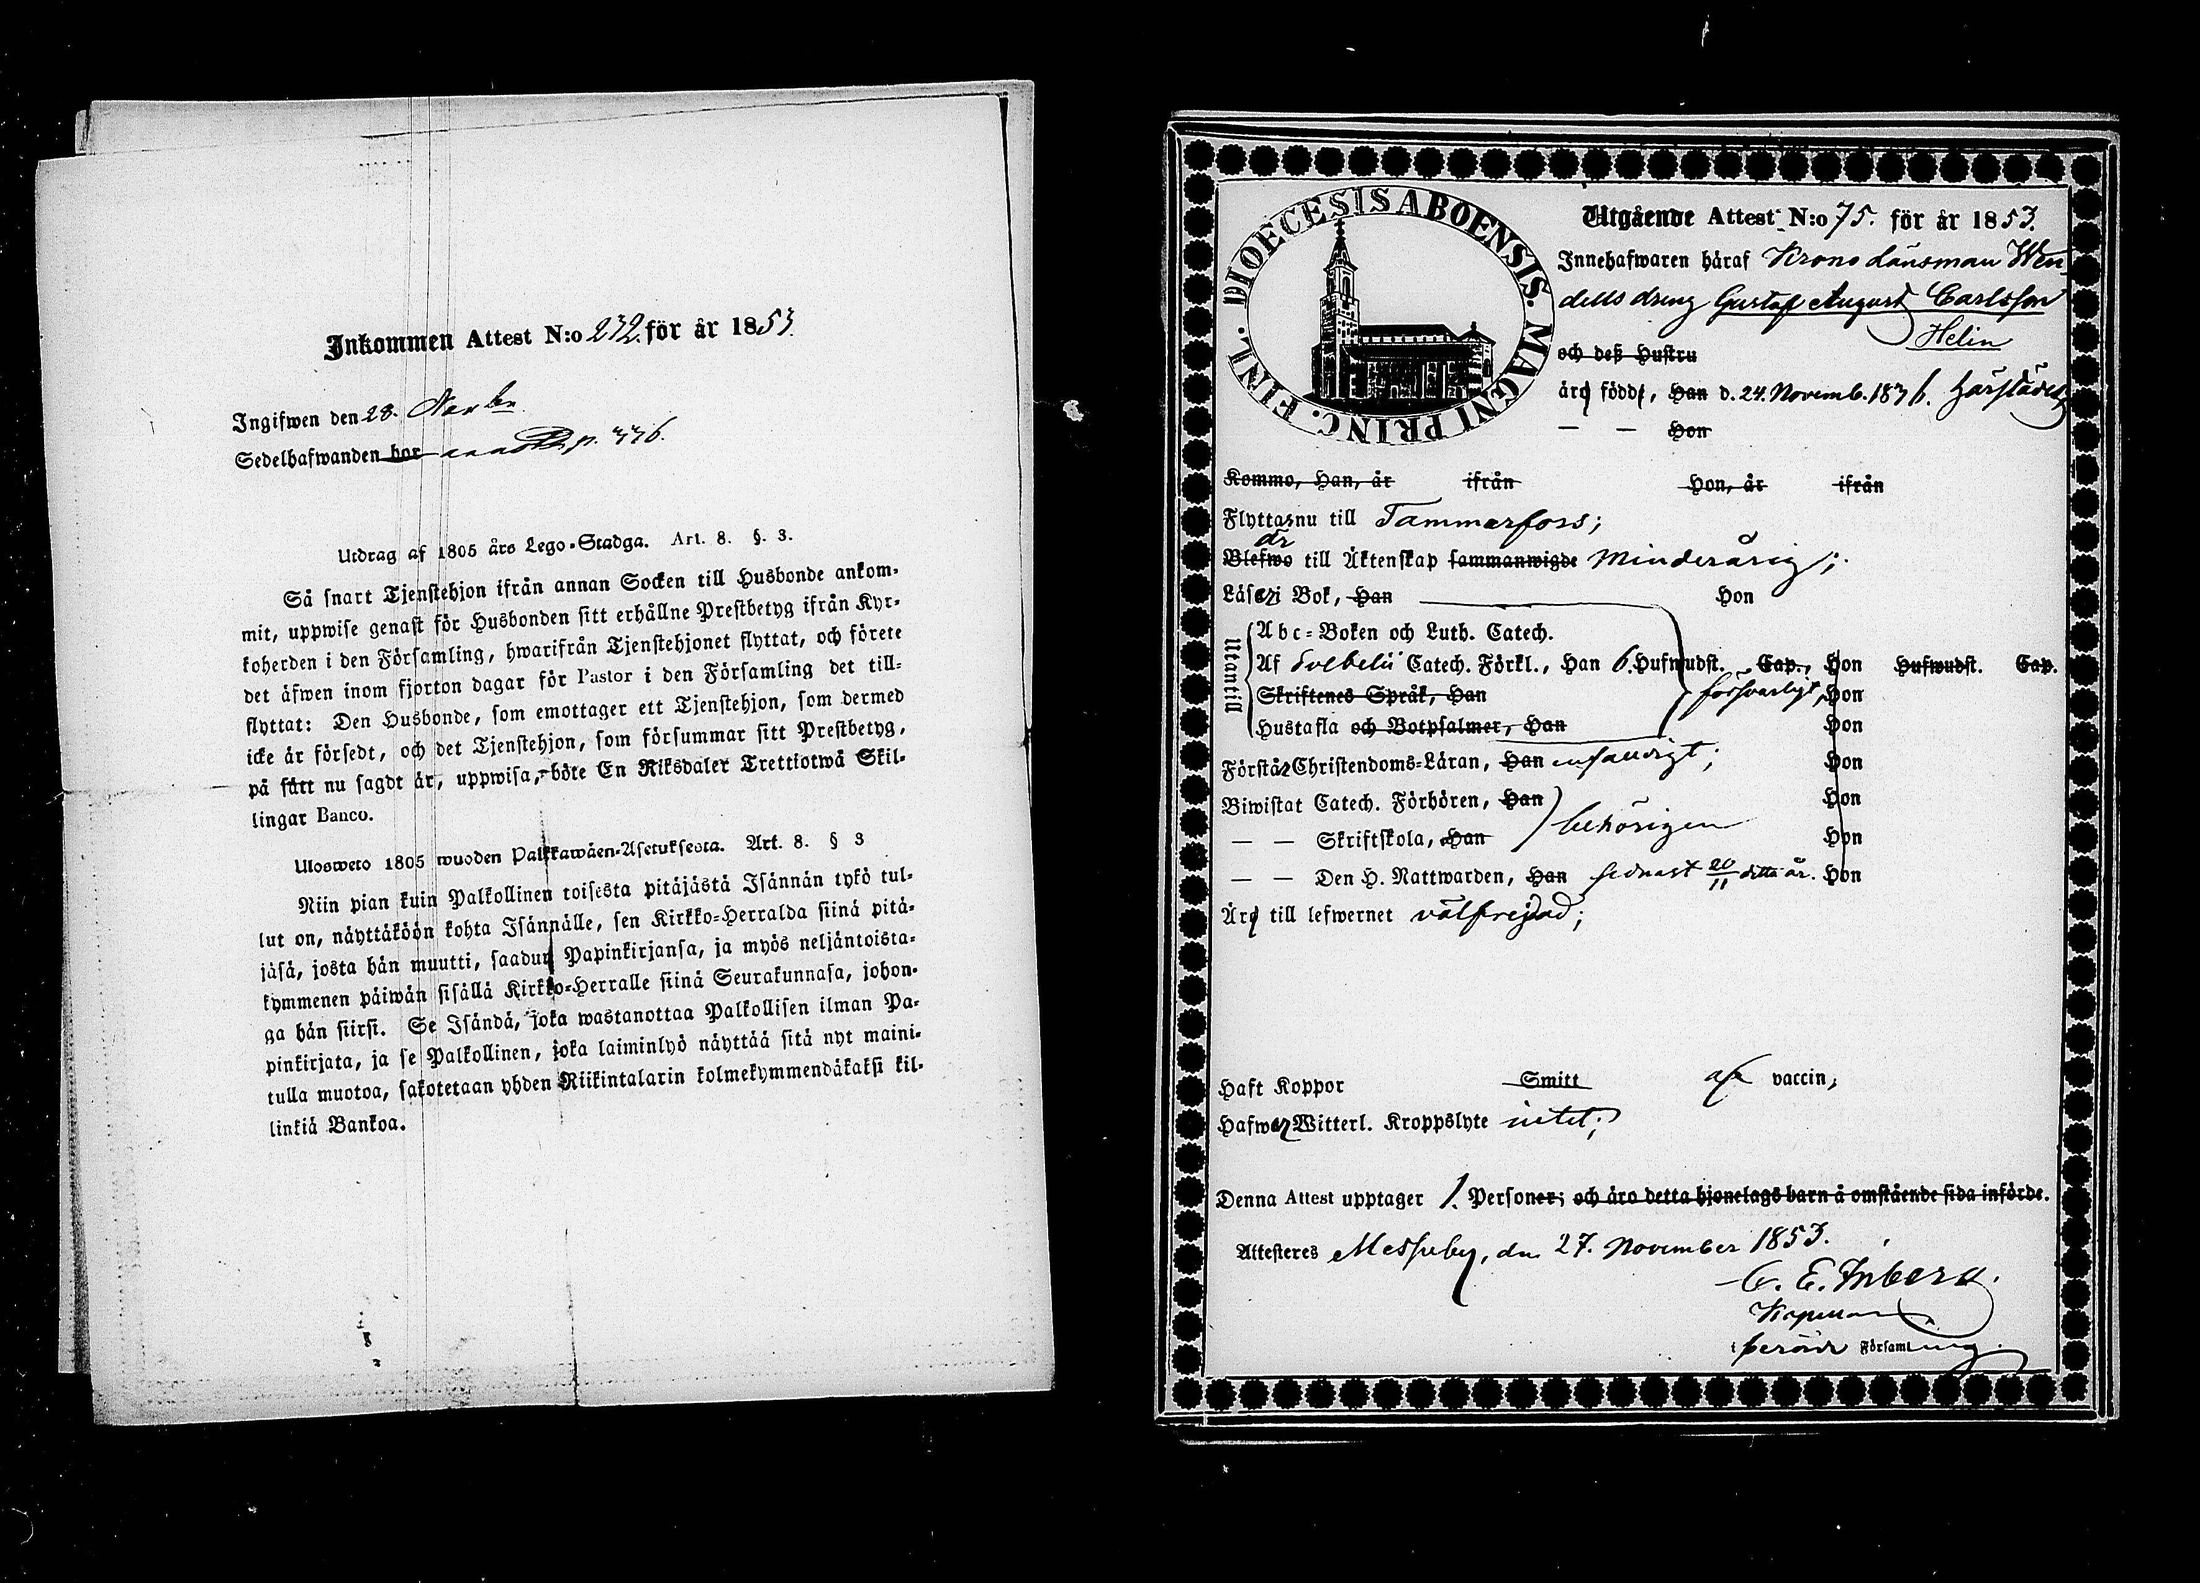 Inkommen Attest N:o 232. för år 1853.
Ingifwen den 28. Novbr
Sedelhafwanden bor p. 336.
Utdrag af 1805 års Lego-Stadga. Art. 8. §. 3.
Så snart Tjenstehjon ifrån annan Socken till Husbonde ankom-
mit, uppwise genast för Husbonden sitt erhållne Prestbetyg ifrån Kyr-
koherden i den Församling, hwarifrån Tjenstehjonet flyttat, och förete
det äfwen inom fjorton dagar för Pastor i den Församling det till-
flyttat: Den Husbonde, som emottager ett Tjenstehjon, som dermed
icke är försedt, och det Tjenstehjon, som försummar sitt Prestbetyg,
på sätt nu sagdt är, uppwisa, böte En Riksdaler Trettiotwå Skil-
lingar Banco.
Ulosweto 1805 wuoden Palkkawäen-Asetuksesta. Art. 8. § 3
Niin pian kuin Palkollinen toisesta pitäjästä Isännän tykö tul-
lut on, näyttäköön kohta Isännälle, sen Kirkko-Herralda siinä pitä-
jäsä, josta hän muutti, saadun Papinkirjansa, ja myös neljäntoista-
kymmenen päiwän sisällä Kirkko-Herralle siinä Seurakunnasa, johon-
ga hän siirsi. Se Isändä, joka wastanottaa Palkollisen ilman Pa-
pinkirjata, ja se Palkollinen, joka laiminlyö näyttää sitä nyt maini-
tulla muotoa, sakotetaan yhden Riikintalarin kolmekymmendäkaksi kil-
linkiä Bankoa.
DIOECESIS ABOENSIS. MAGNI PRINC. FINL.
Utgående Attest N:o 75. för år 1853.
Innehafwaren häraf Krono Länsman Wen-
dells dreng Gustaf August Carlsson
Helin
och deß Hustru
äro född, Han d. 24. Novemb. 1836. härstädes
— — Hon
Kommo, Han, år ifrån Hon, år ifrån
Flyttar nu till Tammerfors;
Är
Blefwo till Äktenskap sammanwigde Minderårig;
Läser i Bok, Han Hon
Utantill
Abc-Boken och Luth. Catech.
Af Svebelii Catech. Förkl., Han 6. Hufwudst. Cap., Hon Hufwudst. Cap.
Skriftenes Språk, Han försvarligt, Hon
Hustafla och Botpsalmer, Han Hon
Förstår Christendoms-Läran, Han enfaldigt; Hon
Biwistat Catech. Förhören, Han Hon
— — Skriftskola, Han behörigen Hon
— — Den H. Nattwarden, Han sednast 20/11 detta år. Hon
Är till lefwernet välfrejdad;
Haft Koppor Smitt af vaccin;
Hafwer Witterl. Kroppslyte intet;
Denna Attest upptager 1. Personer; och äro detta hjonelags barn å omstående sida införde.
Attesteres Messuby, den 27. November 1853.
Kapellan
i Församling.